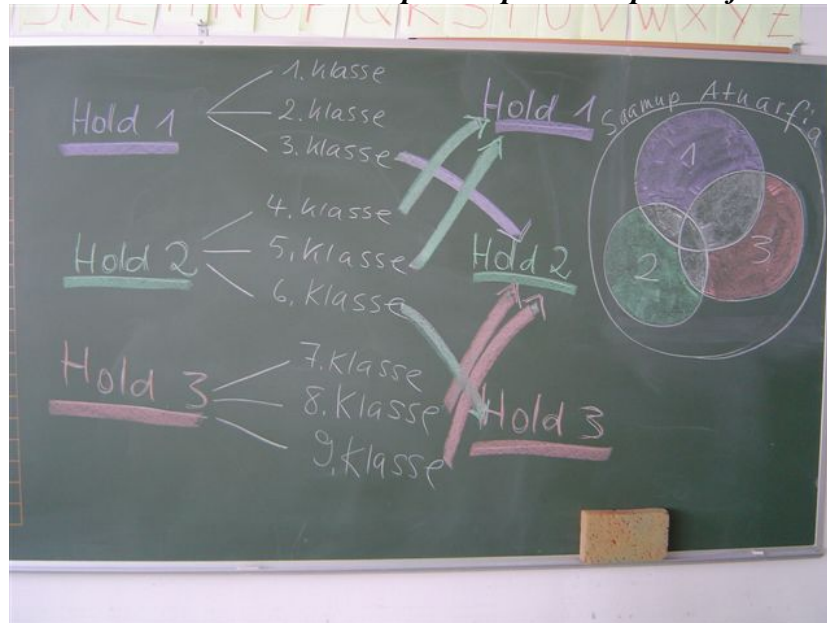 Hold 1
1. Klasse
2. Klasse
3. Klasse
Hold 2
4. Klasse
5. Klasse
6. Klasse
Hold 3
7. Klasse
8. Klasse
9. Klasse
Hold 1
Hold 2
Hold 3
Saamup Atuarfia
1
2
3